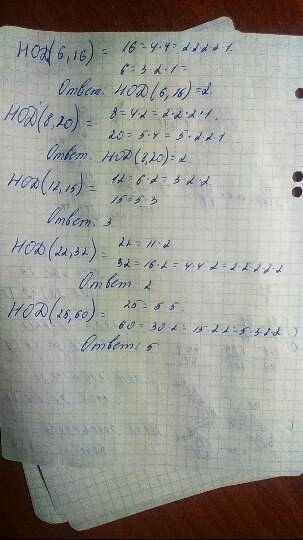 НОД(6,16) = 16=4·4=2·2·2·2·1.
6=3·2·1=
Ответ: НОД(6,16)=2.
НОД(8,20)= 8=4·2=2·2·2·1.
20=5·4=5·2·2·1
Ответ. НОД(8,20)=2
НОД(12,15)= 12=6·2=3·2·2
15=5·3
Ответ. 3
НОД(22,32)= 22=11·2
32=16·2=4·4·2=2·2·2·2·2
Ответ 2
НОД(25,60)= 25=5·5.
60=30·2=15·2·2=5·3·2·2
Ответ: 5